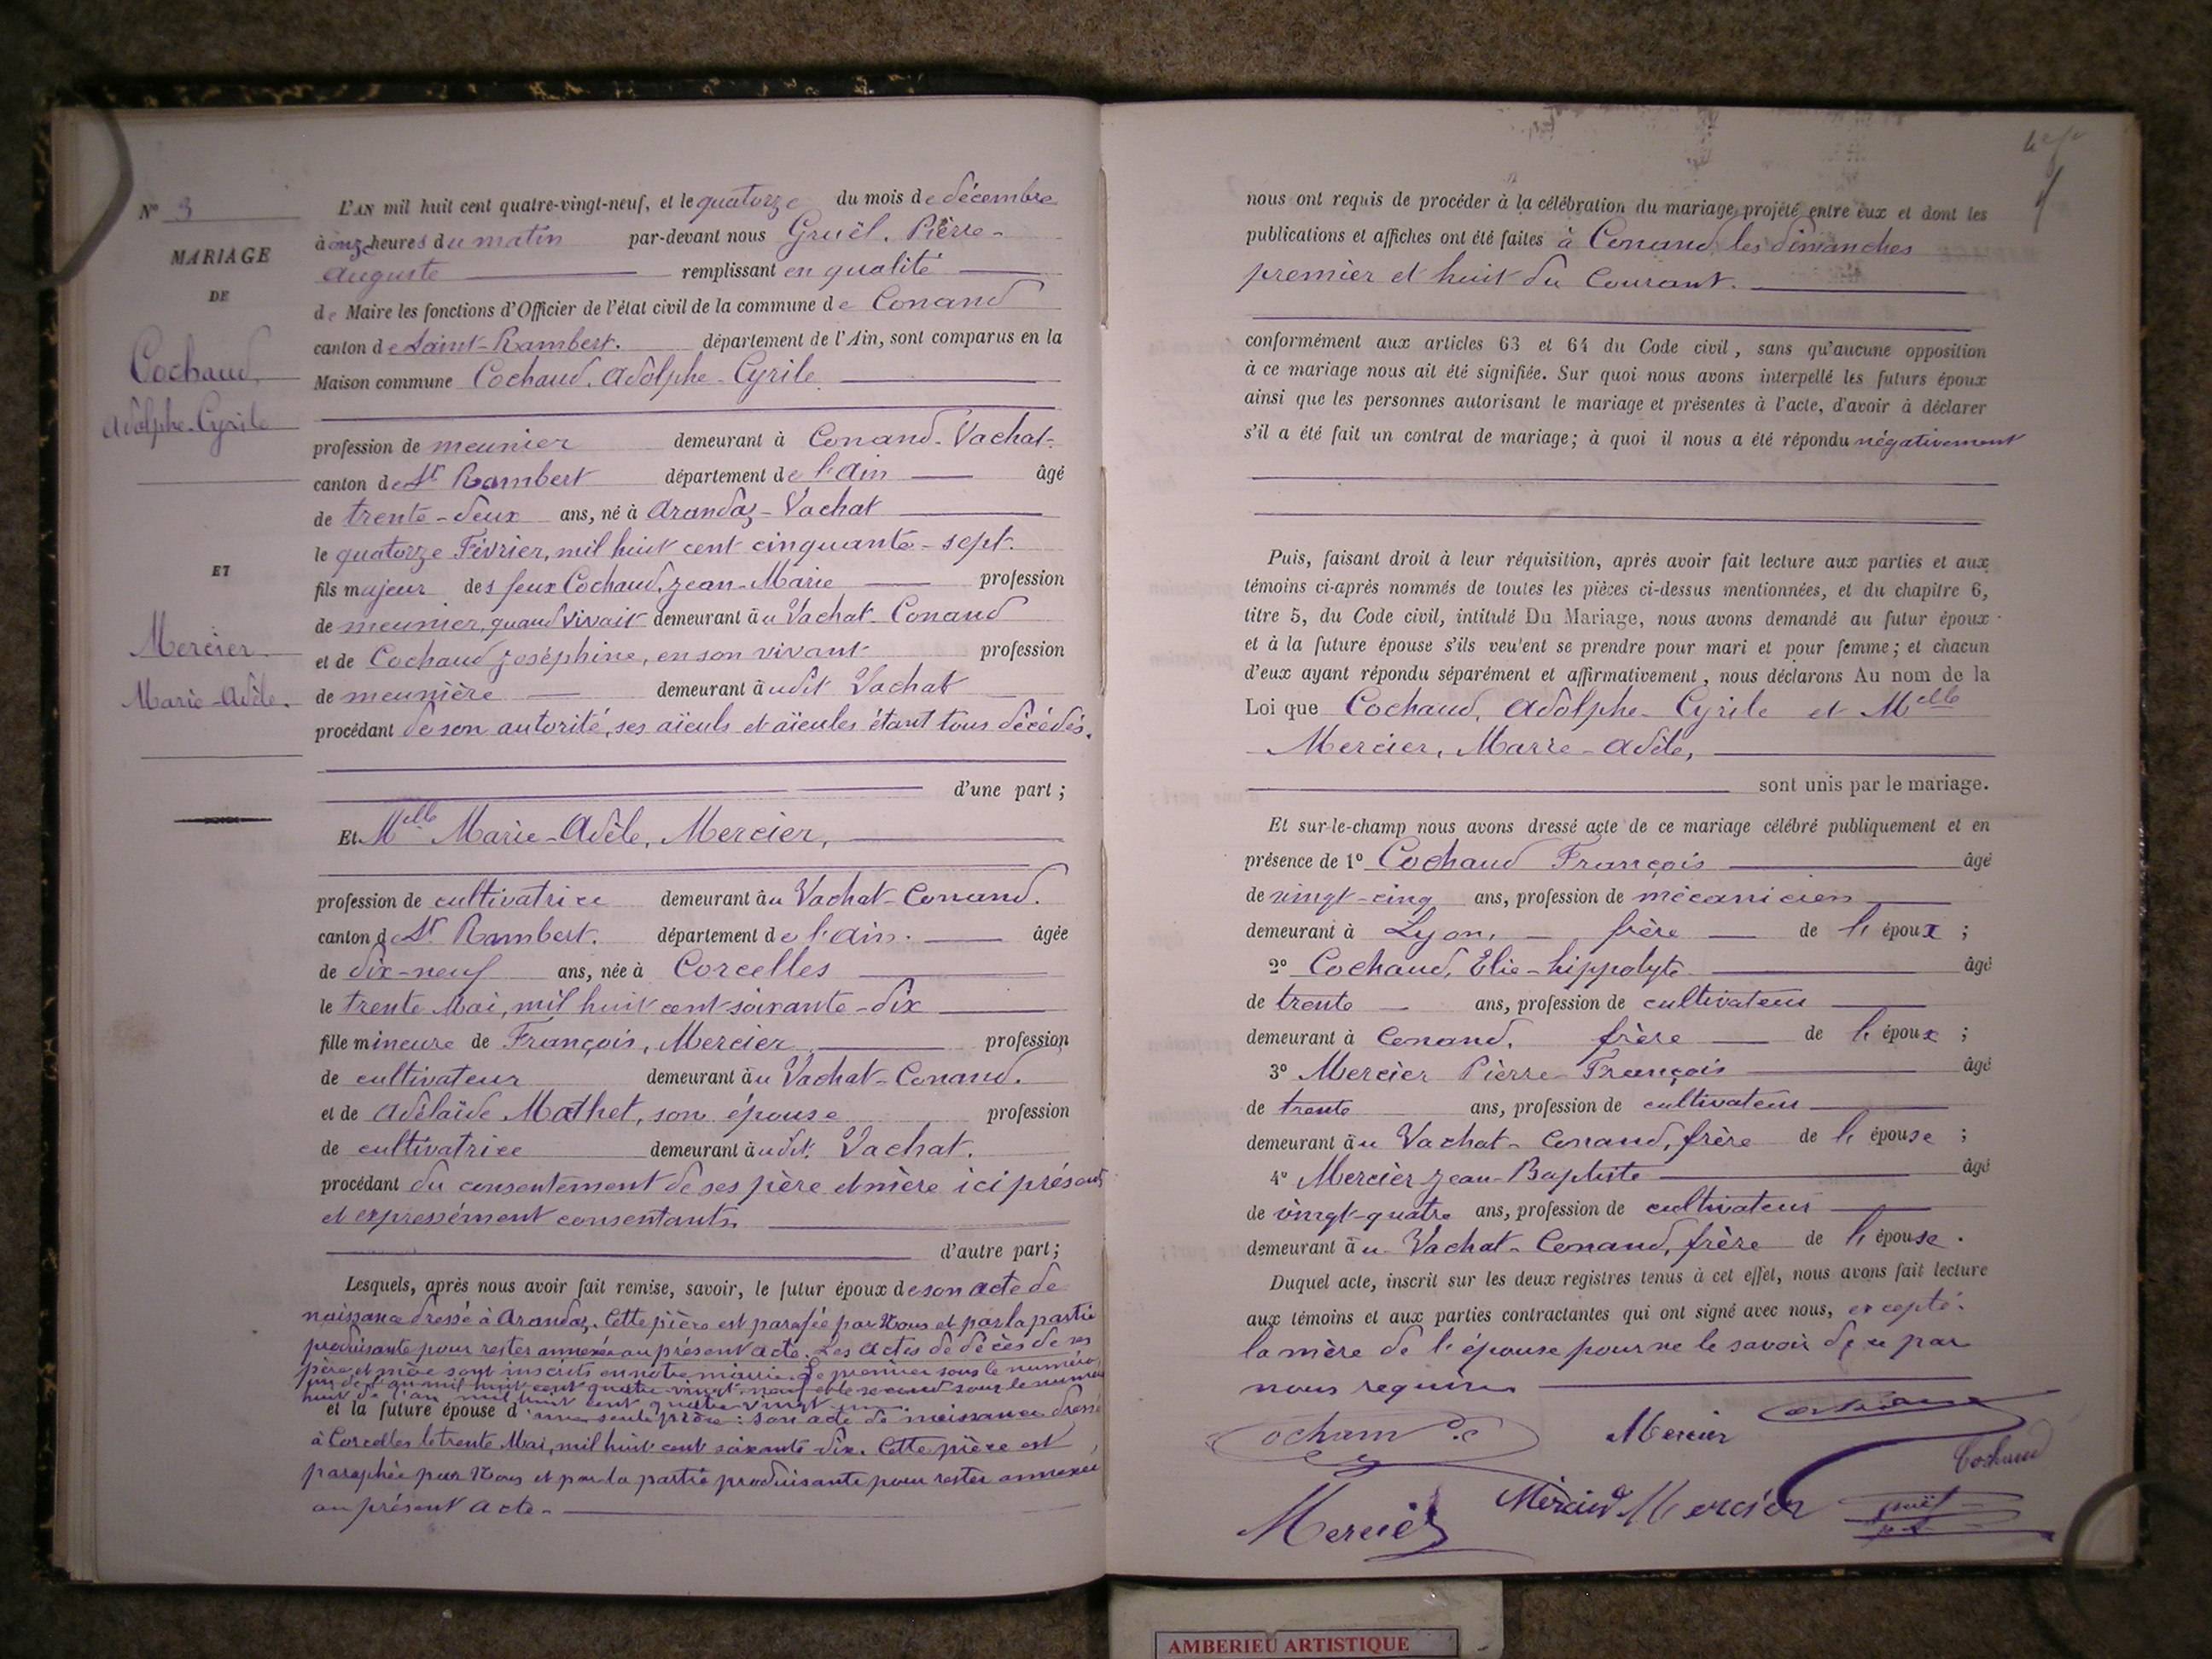 N° 3
MARIAGE
DE
Cochaud,
Adolphe-Cyrile
ET
Mercier
Marie-Adèle.
L'AN mil huit cent quatre-vingt-neuf, et le quatorze du mois de décembre
à onze heures du matin par-devant nous Gruël, Pierre-
Auguste remplissant en qualité
de Maire les fonctions d'Officier de l'état civil de la commune de Conand
canton de Saint-Rambert. département de l'Ain, sont comparus en la
Maison commune Cochaud, Adolphe-Cyrile
profession de meunier demeurant à Conand-Vachat-
canton de St Rambert département de l'Ain âgé
de trente-deux ans, né à Arandas-Vachat
le quatorze Février, mil huit cent cinquante-sept.
fils majeur des feux Cochaud, Jean-Marie profession
de meunier, quand vivait demeurant au Vachat-Conand
et de Cochaud Joséphine, en son vivant profession
de meunière demeurant audit Vachat
procédant de son autorité, ses aïeuls et aïeules étant tous décédés.
d'une part ;
Et Melle Marie-Adèle, Mercier,
profession de cultivatrice demeurant au Vachat-Conand.
canton de St Rambert. département de l'Ain. âgée
de dix-neuf ans, née à Corcelles
le trente Mai, mil huit cent soixante-dix
fille mineure de François, Mercier profession
de cultivateur demeurant au Vachat-Conand.
et de Adélaïde Mathet, son épouse profession
de cultivatrice demeurant audit Vachat.
procédant du consentement de ses père et mère ici présents
et expressément consentants.
d'autre part;
Lesquels, après nous avoir fait remise, savoir, le futur époux de son acte de
naissance dressé à Arandas. Cette pièce est parafée par Nous et par la partie
produisante pour rester annexée au présent acte. Les actes de décès de ses
père et mère sont inscrits en notre mairie. Le premier sous le numéro
de l'an mil huit cent quatre-vingt-neuf et le second sous le numéro
huit de l'an mil huit cent quatre vingt
et la future épouse d'une seule pièce : son acte de naissance dressé
à Corcelles le trente Mai, mil huit cent soixante-dix. Cette pièce est
paraphée par Nous et par la partie produisante pour rester annexée
au présent acte.
nous ont requis de procéder à la célébration du mariage projeté entre eux et dont les
publications et affiches ont été faites à Conand, les dimanches
premier et huit du Courant.
conformément aux articles 63 et 64 du Code civil, sans qu'aucune opposition
à ce mariage nous ait été signifiée. Sur quoi nous avons interpellé les futurs époux
ainsi que les personnes autorisant le mariage et présentes à l'acte, d'avoir à déclarer
s'il a été fait un contrat de mariage; à quoi il nous a été répondu négativement
Puis, faisant droit à leur réquisition, après avoir fait lecture aux parties et aux
témoins ci-après nommés de toutes les pièces ci-dessus mentionnées, et du chapitre 6,
titre 5, du Code civil, intitulé Du Mariage, nous avons demandé au futur époux
et à la future épouse s'ils veulent se prendre pour mari et pour femme; et chacun
d'eux ayant répondu séparément et affirmativement, nous déclarons Au nom de la
Loi que Cochaud, Adolphe-Cyrile et Melle
Mercier, Marie-Adèle,
sont unis par le mariage.
Et sur-le-champ nous avons dressé acte de ce mariage célébré publiquement et en
présence de 1° Cochaud François âgé
de vingt-cinq ans, profession de mécanicien
demeurant à Lyon, frère de l'époux ;
2° Cochaud, Elie-hippolyte âgé
de trente ans, profession de cultivateur
demeurant à Conand, frère de l'époux ;
3° Mercier Pierre-François âgé
de trente ans, profession de cultivateur
demeurant au Vachat-Conand, frère de l'épouse ;
4° Mercier Jean-Baptiste âgé
de vingt-quatre ans, profession de cultivateur
demeurant au Vachat-Conand, frère de l'épouse.
Duquel acte, inscrit sur les deux registres tenus à cet effet, nous avons fait lecture
aux témoins et aux parties contractantes qui ont signé avec nous, excepté
la mère de l'épouse pour ne le savoir de ce par
nous requise
Mercier
Cochaud
Mercier Mercier Mercier
AMBERIEU ARTISTIQUE